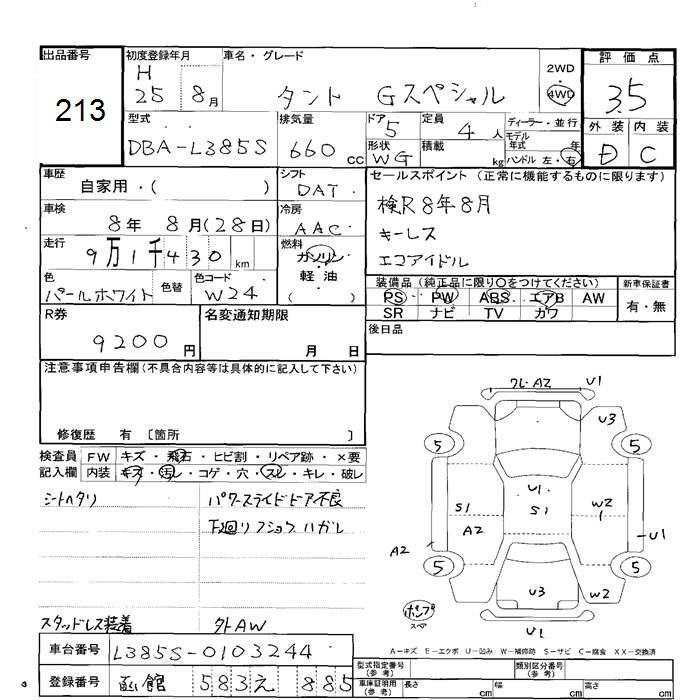 出品番号
213
初度登録年月
H 25 8月
車名・グレード
タント Gスペシャル
2WD
・
4WD
評価点
3.5
外装 内装
D C
型式
DBA-L385S
排気量
660 cc
ドア
5
形状
WG
定員
4 人
積載
kg
ディーラー・並行
モデル年式 年
ハンドル 左・右
車歴
自家用・( )
シフト
DAT
車検
8年 8月(28日)
冷房
AAC
走行
9万1千430 km
燃料
ガソリン
軽油
( )
色
パールホワイト
色替
色コード
W24
R券
9200円
名変通知期限
月 日
セールスポイント (正常に機能するものに限ります)
検R8年8月
キーレス
エコアイドル
装備品 (純正品に限り○をつけてください)
PS PW ABS エアB AW
SR ナビ TV カワ
新車保証書
有・無
後日品
注意事項申告欄(不具合内容等は具体的に記入して下さい)
修復歴 有 〔箇所 〕
検査員記入欄
FW キズ・飛石・ヒビ割・リペア跡・×要
内装 キズ・汚レ・コゲ・穴・スレ・キレ・破レ
シートヘタリ
パワースライドドア不良
下廻りフショクハガレ
スタッドレス装着
外AW
ワレ・A2 U1
U3
5 5
U1
S1
S1
A2
W2
A2
U1
5 5
U3
W2
ポンプ
スペア
U1
A－キズ E－エクボ U－凹み W－補修跡 S－サビ C－腐食 XX－交換済
車台番号
L385S-0103244
登録番号
函館 583え 885
型式指定番号(参考)
類別区分番号(参考)
車庫証明用(参考) 長さ cm 幅 cm 高さ cm